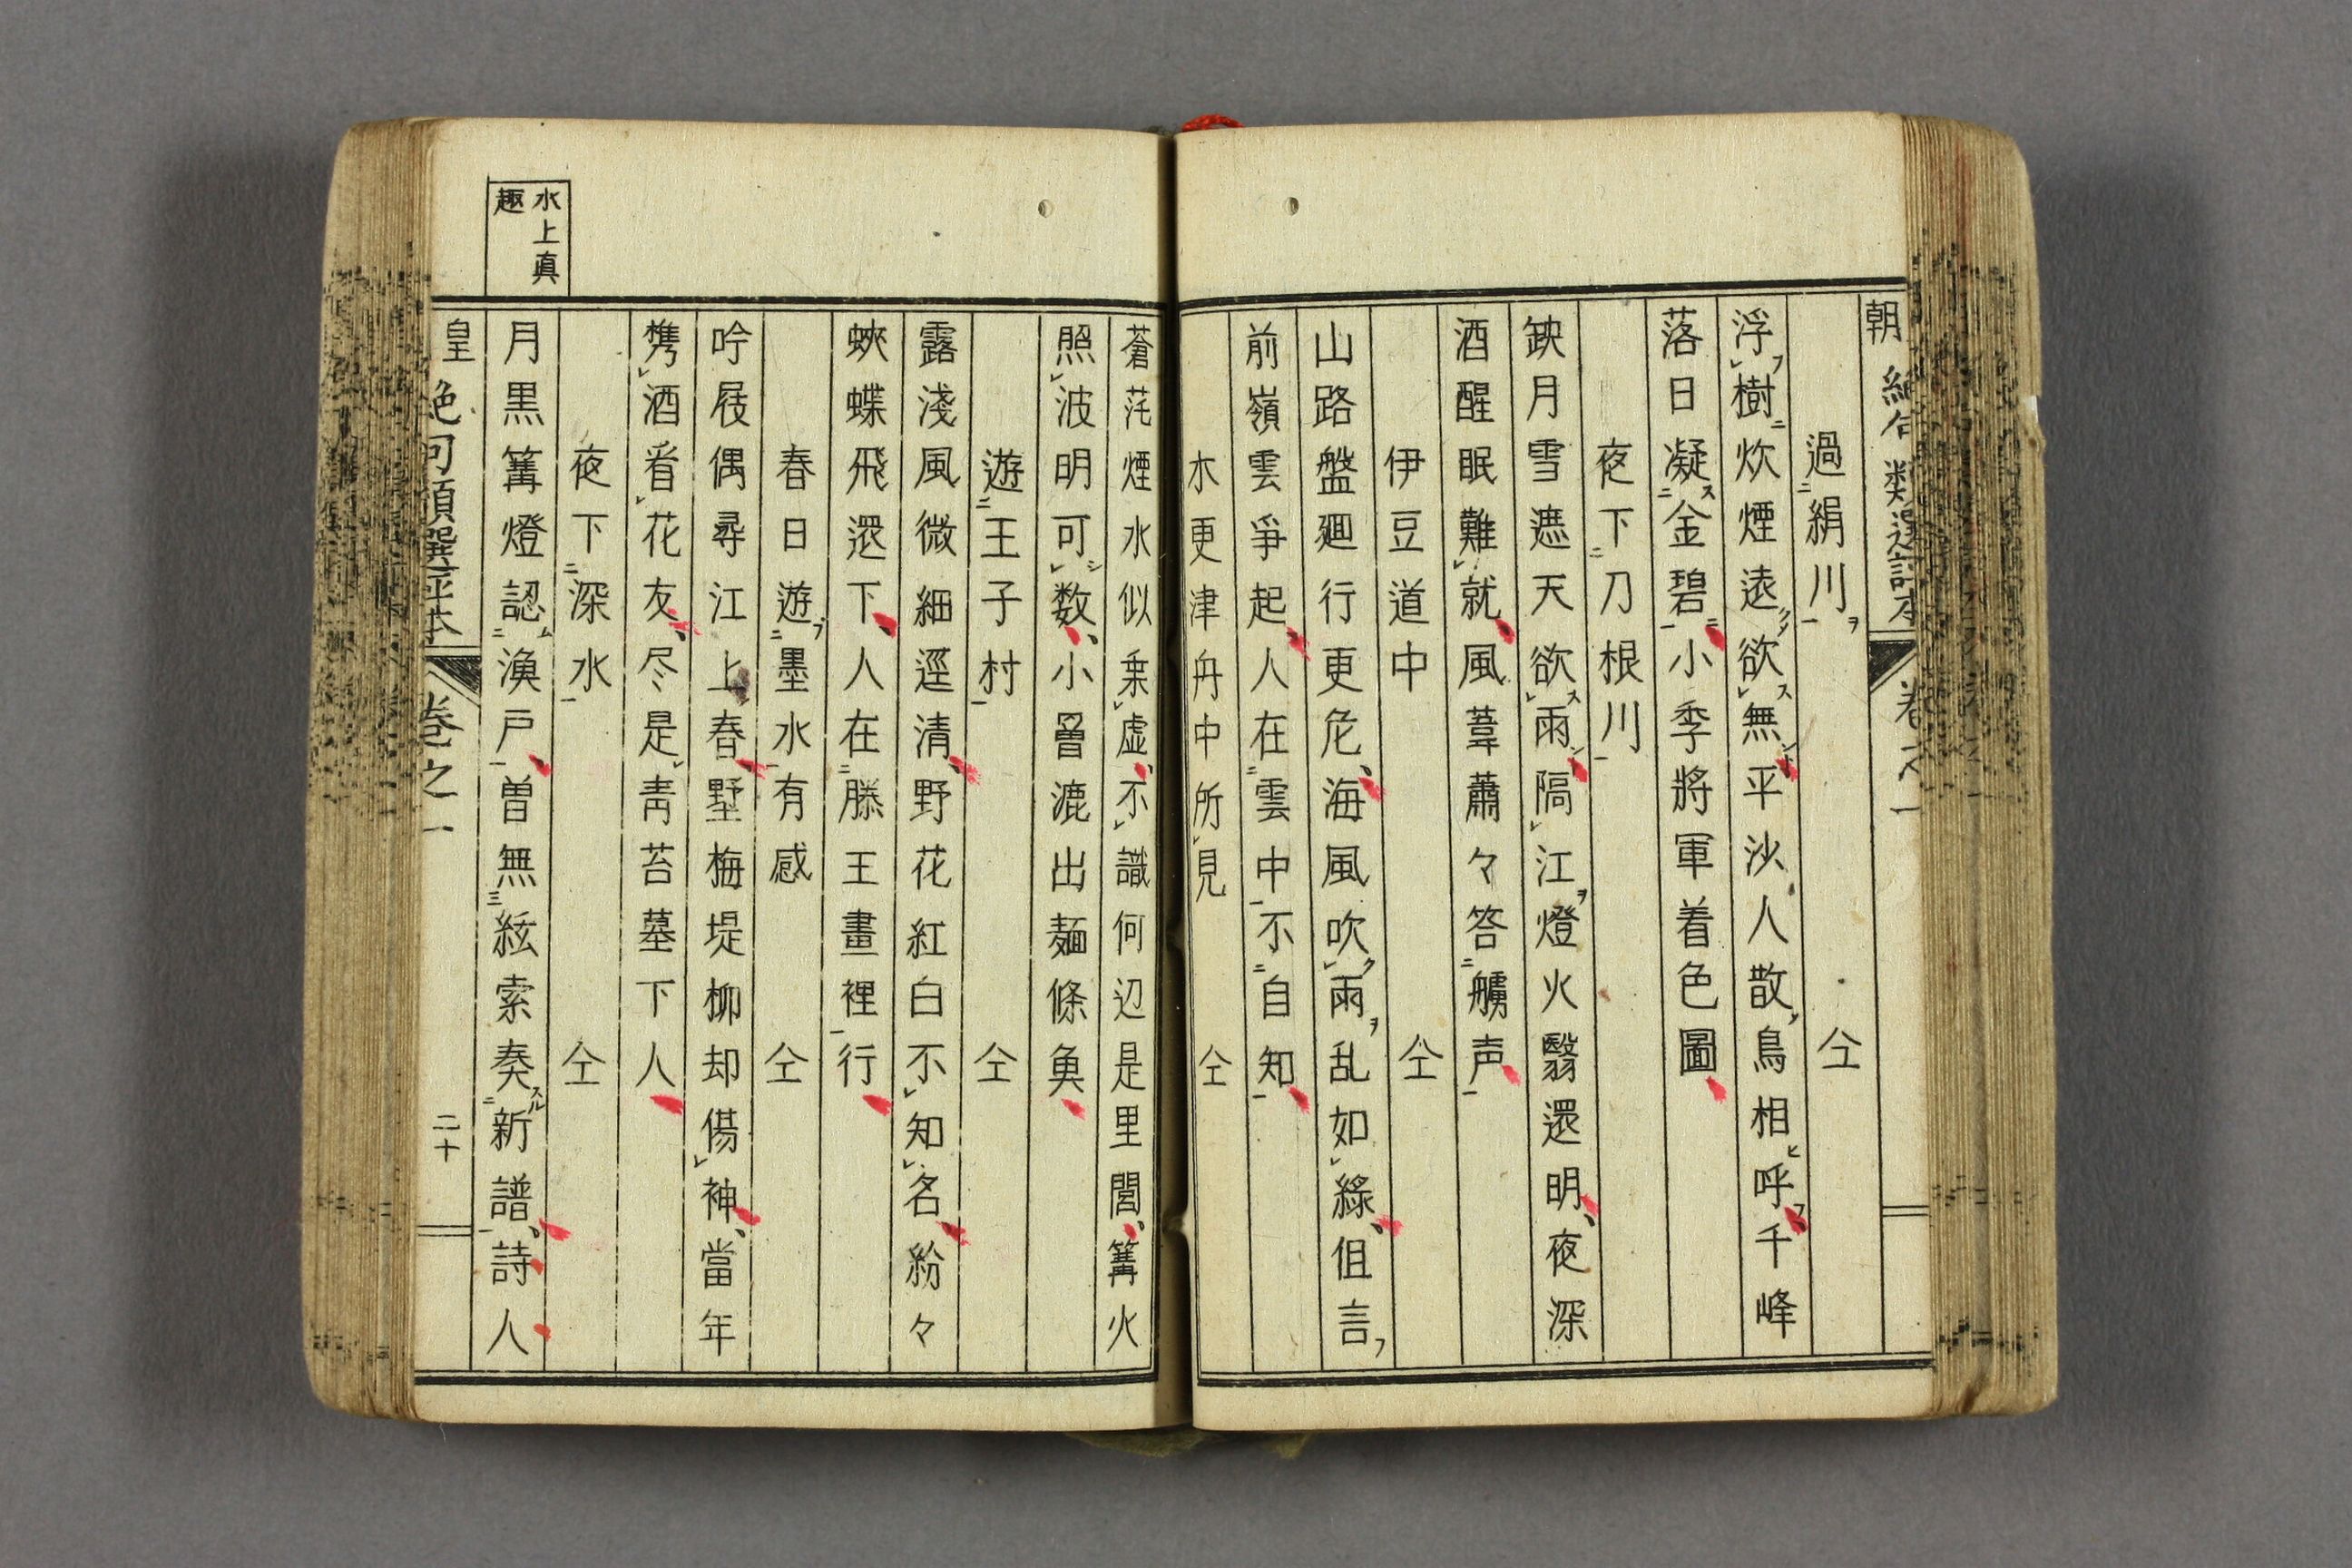 朝 絶句類選評本 卷之一
過絹川 仝
浮樹炊煙遠欲無平沙人散鳥相呼千峰
落日凝金碧小李將軍着色圖
夜下刀根川
缺月雪遮天欲雨隔江燈火翳還明夜深
酒醒眠難就風葦蕭々答艣声
伊豆道中 仝
山路盤廻行更危海風吹雨乱如綠但言
前嶺雲爭起人在雲中不自知
木更津舟中所見 仝
蒼茫煙水似乗虚不識何辺是里閭篝火
照波明可数小罾漉出麺條魚
遊王子村 仝
露淺風微細逕清野花紅白不知名紛々
蛺蝶飛還下人在滕王畫裡行
春日遊墨水有感 仝
吟屐偶尋江上春墅梅堤柳却傷神當年
携酒看花友尽是青苔墓下人
夜下深水 仝
月黒篝燈認漁戸曽無絃索奏新譜詩人
水上真
趣
皇 絶句類選評本 卷之一 二十